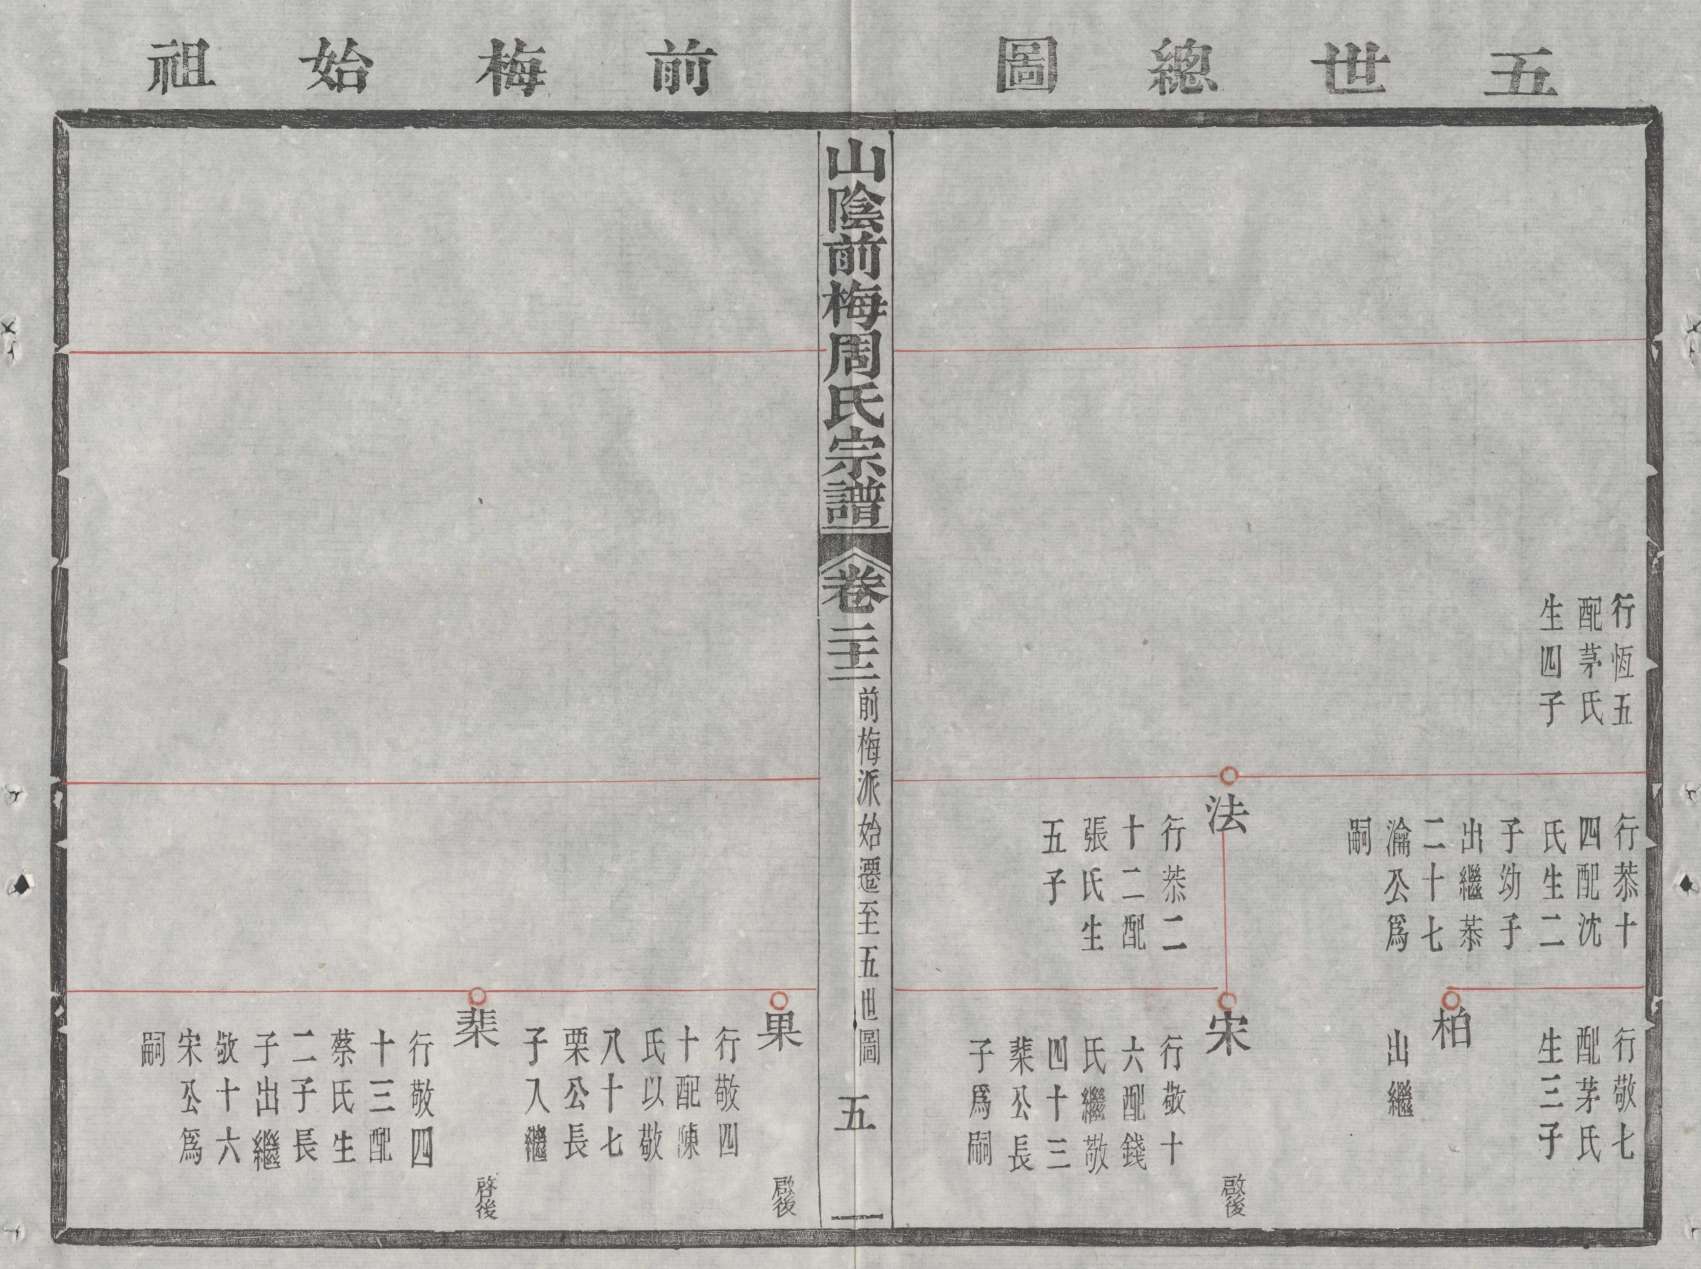 五世總圖
行恆五
配茅氏
生四子
行恭十
四配沈
氏生二
子幼子
出繼恭
二十七
瀹公爲
嗣
法
行恭二
十二配
張氏生
五子
行敬七
配茅氏
生三子
柏
出繼
宋
行敬十
六配錢
氏繼敬
四十三
棐公長
子爲嗣
啟後
山陰前梅周氏宗譜
卷二十二
前梅派始遷至五世圖
五
一
前梅始祖
果
行敬四
十配陳
氏以敬
八十七
栗公長
子入繼
啟後
棐
行敬四
十三配
蔡氏生
二子長
子出繼
敬十六
宋公爲
嗣
啓後